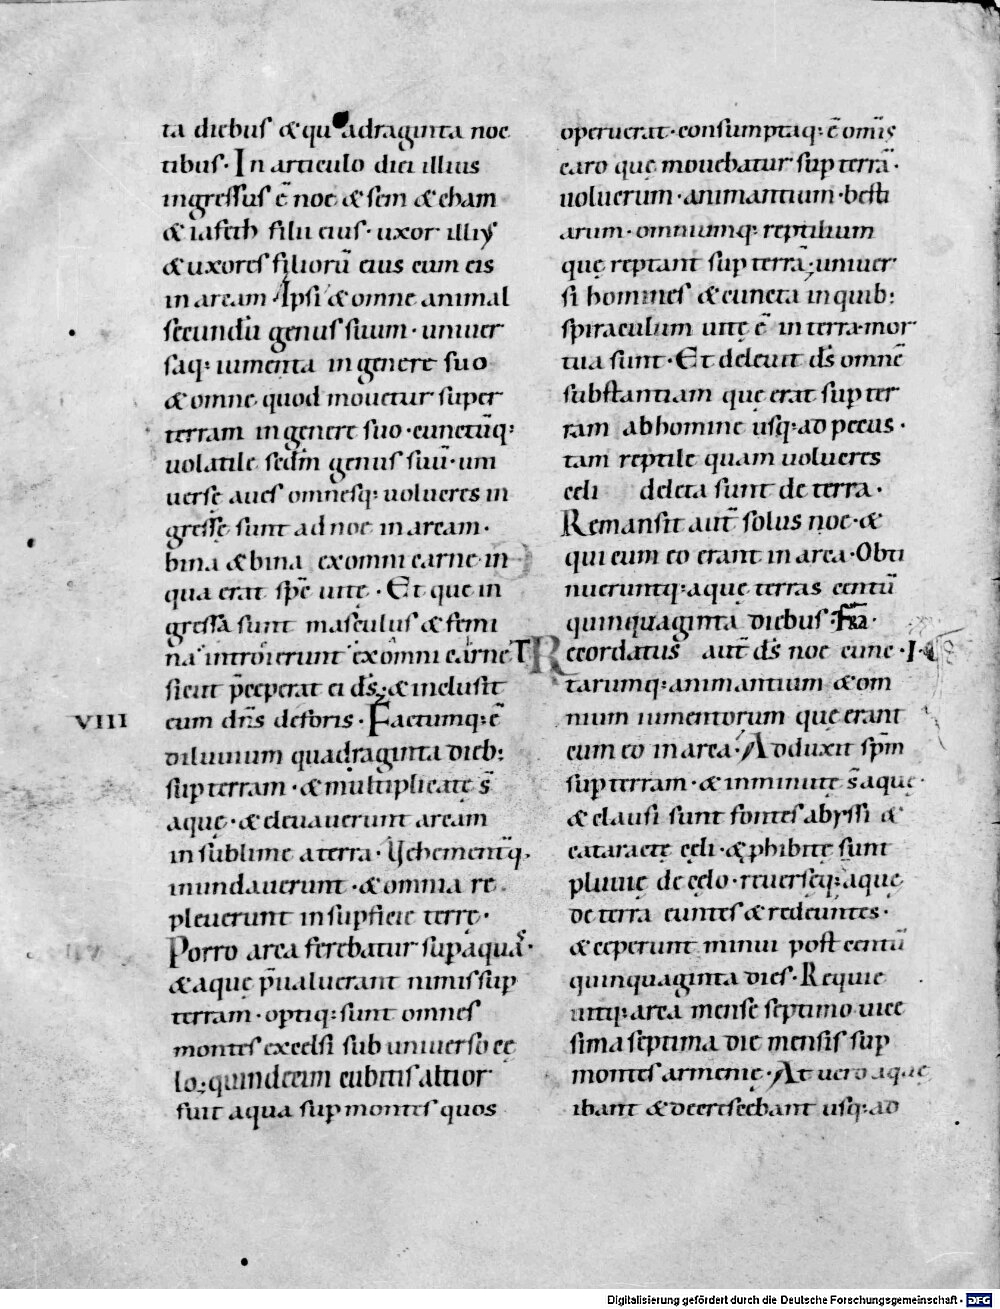 ta diebus & quadraginta noc
tibus · In articulo diei illius
ingressus ē noe & sem & cham
& iafeth filii eius · uxor illius
& uxores filiorū eius cum eis
in arcam · Ipsi & omne animal
secundū genus suum · uniuer
saq: iumenta in genere suo
& omne quod mouetur super
terram in genere suo · cunctūq:
uolatile scdm̄ genus suū · uni
uersę aues omnesq: uolucres in
gressę sunt ad noe in arcam ·
bina & bina ex omni carne in
qua erat spc̄ uitę · Et que in
gressa sunt masculus & femi
na introierunt ex omni carne
sicut p̄ceperat ei ds̄; & inclusit
VIII
eum dn̄s deforis · Factumq: ē
diluuium quadraginta dieb:
sup terram · & multiplicatę s̄
aquę · & eleuauerunt arcam
in sublime a terra · Uehement̄q:
inundauerunt · & omnia re
pleuerunt in supficie terrę ·
Porro arca ferebatur sup aquas ·
& aquę p̄ualuerant nimis sup
terram · optiq: sunt omnes
montes excelsi sub uniuerso cę
lo; quindecim cubitis altior
fuit aqua sup montes quos
operuerat · consumptaq: ē omīs
caro quę mouebatur sup terrā ·
uolucrum · animantium · besti
arum · omniumq: reptilium
quę reptant sup terrā; uniuer
si homines & cuncta in quib:
spiraculum uitę ē in terra · mor
tua sunt · Et deleuit ds̄ omnē
substantiam quę erat sup ter
ram ab homine usq: ad pecus ·
tam reptile quam uolucres
celi deleta sunt de terra ·
Remansit aut̄ solus noe · &
qui cum eo erant in arca · Obti
nueruntq: aquę terras centū
quinquaginta diebus ·
T Recordatus aut̄ ds̄ noe cunc · I ·
tarumq: animantium & om
nium iumentorum quę erant
cum eo in arca · Adduxit spm̄
sup terram · & inminutę s̄ aquę ·
& clausi sunt fontes abyssi &
cataractę cęli · & phibitę sunt
pluuię de cęlo · reuersęq: aquę
de terra euntes & redeuntes ·
& ceperunt minui post centū
quinquaginta dies · Requie
uitq: arca mense septimo uice
sima septima die mensis sup
montes armenię · At uero aquę
ibant & decrescebant usq: ad
Digitalisierung gefördert durch die Deutsche Forschungsgemeinschaft - DFG